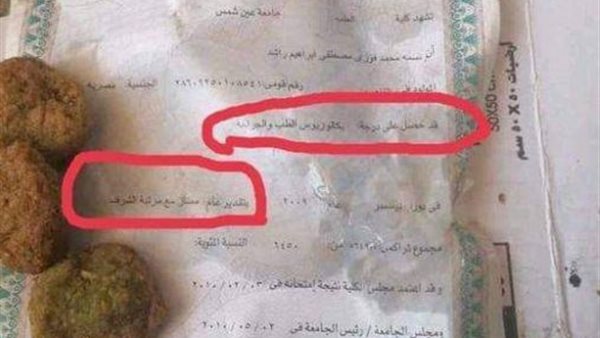 تشهد كلية الطب جامعة عين شمس
أن نسمه محمد فوزى مصطفى ابراهيم راشد
المولود فى رقم قومى: الجنسية مصريه
قد حصل على درجة بكالوريوس الطب والجراحة
بتقدير عام ممتاز مع مرتبة الشرف
فى دور: ديسمبر عام ٢٠٠٩
مجموع تراكمى: من: ٦٤٥٠ النسبة المئوية:
وقد اعتمد مجلس الكلية نتيجة إمتحانه فى ٢٠١٠/٠٢/٠٣
ومجلس الجامعة / رئيس الجامعة فى ٢٠١٠/٠٥/٠٢
أرضيات ٥٠ X ٥٠ سم
50X50